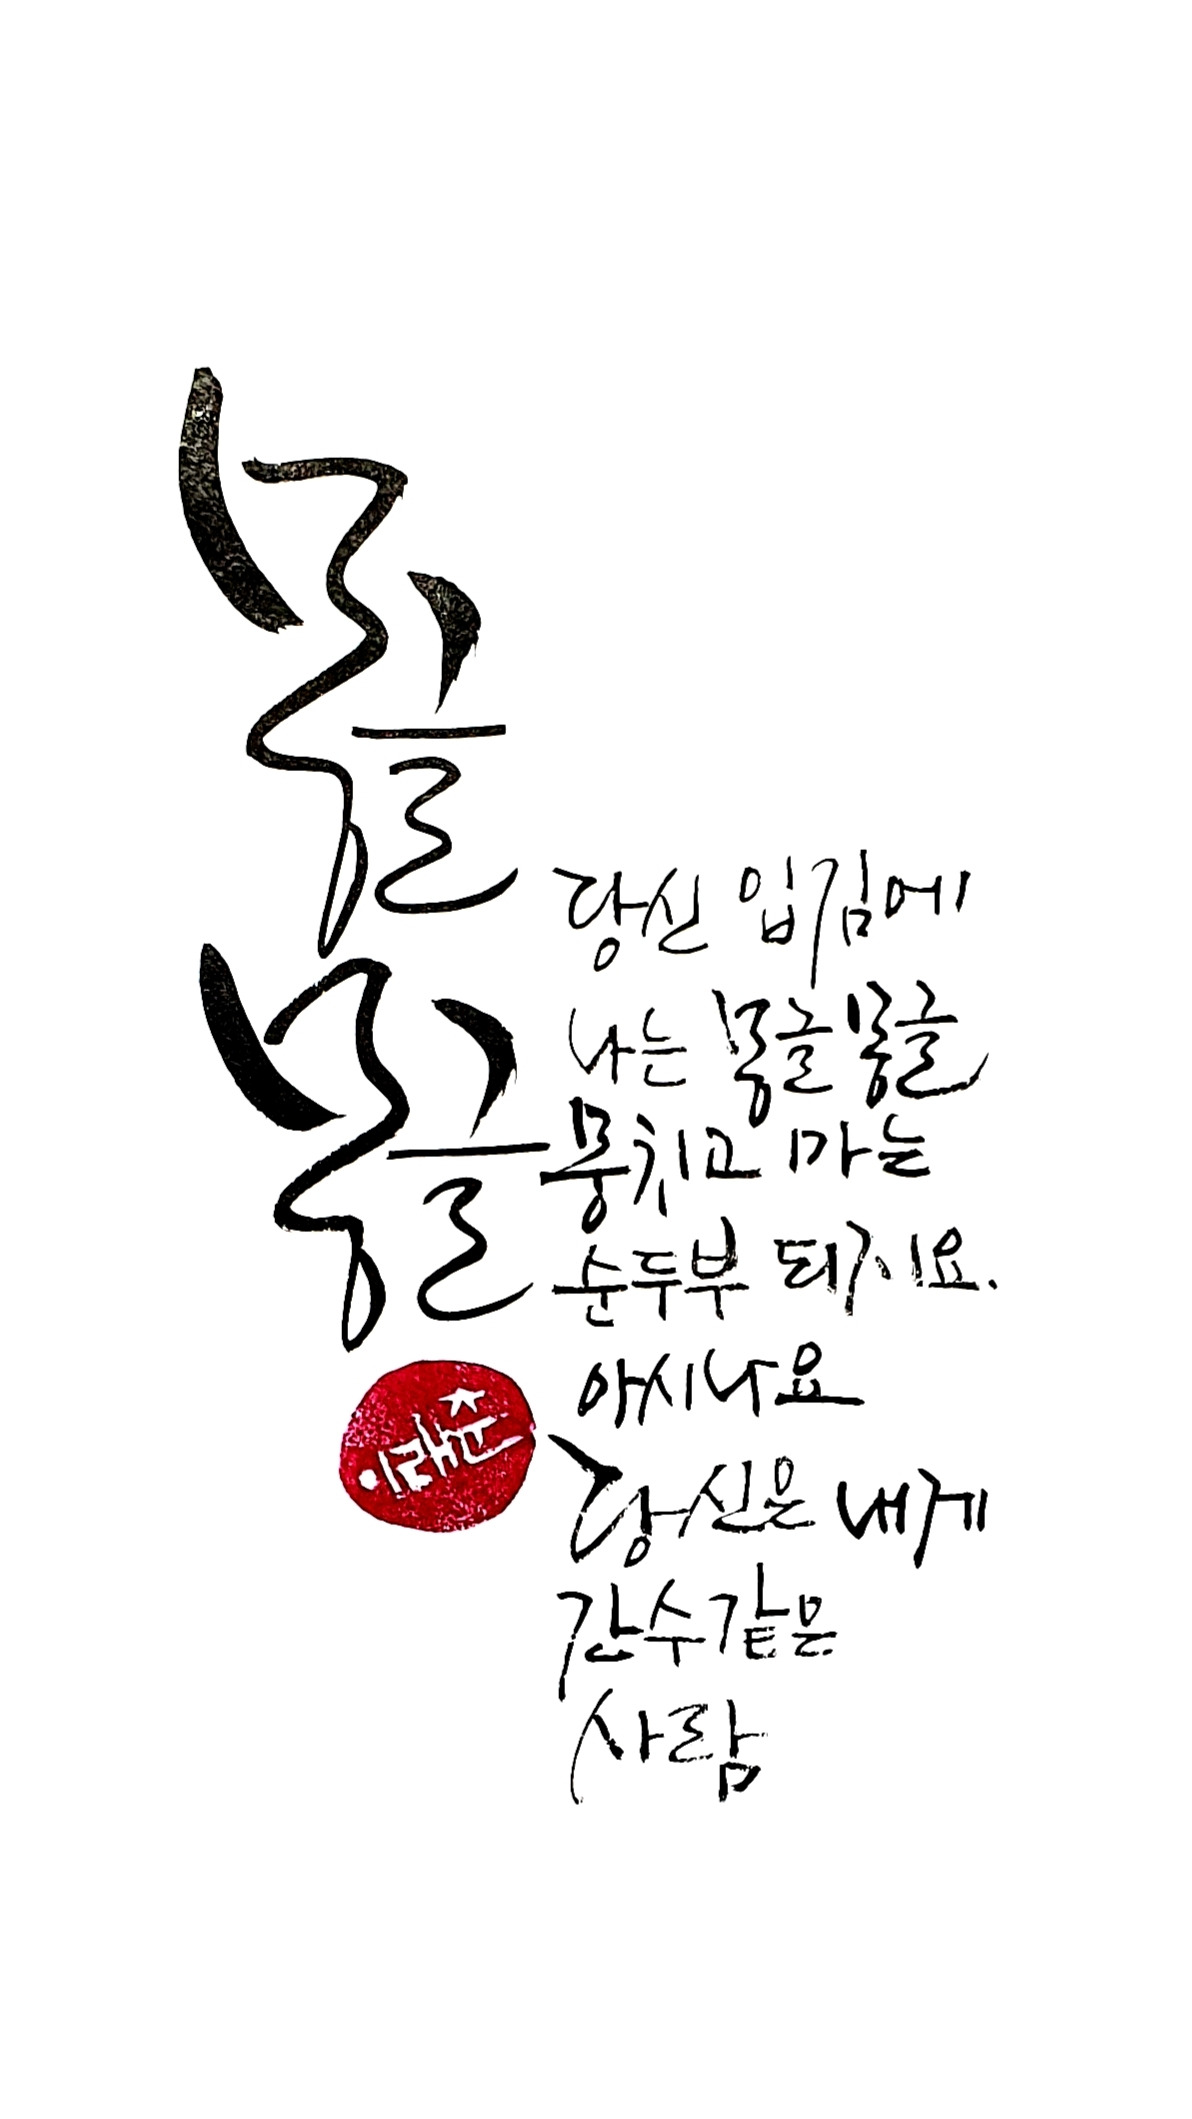 몽글
몽글
당신 입김에
나는 몽글몽글
뭉치고 마는
순두부 되지요.
아시나요
당신은 내게
간수같은
사람
이래춘